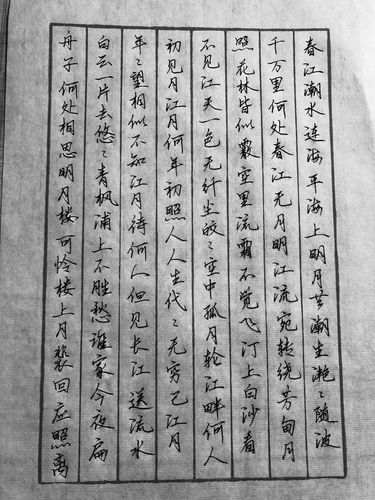 春江潮水连海平海上明月共潮生滟〻随波
千万里何处春江无月明江流宛转绕芳甸月
照花林皆似霰空里流霜不觉飞汀上白沙看
不见江天一色无纤尘皎〻空中孤月轮江畔何人
初见月江月何年初照人人生代〻无穷已江月
年〻望相似不知江月待何人但见长江送流水
白云一片去悠〻青枫浦上不胜愁谁家今夜扁
舟子何处相思明月楼可怜楼上月裴回应照离